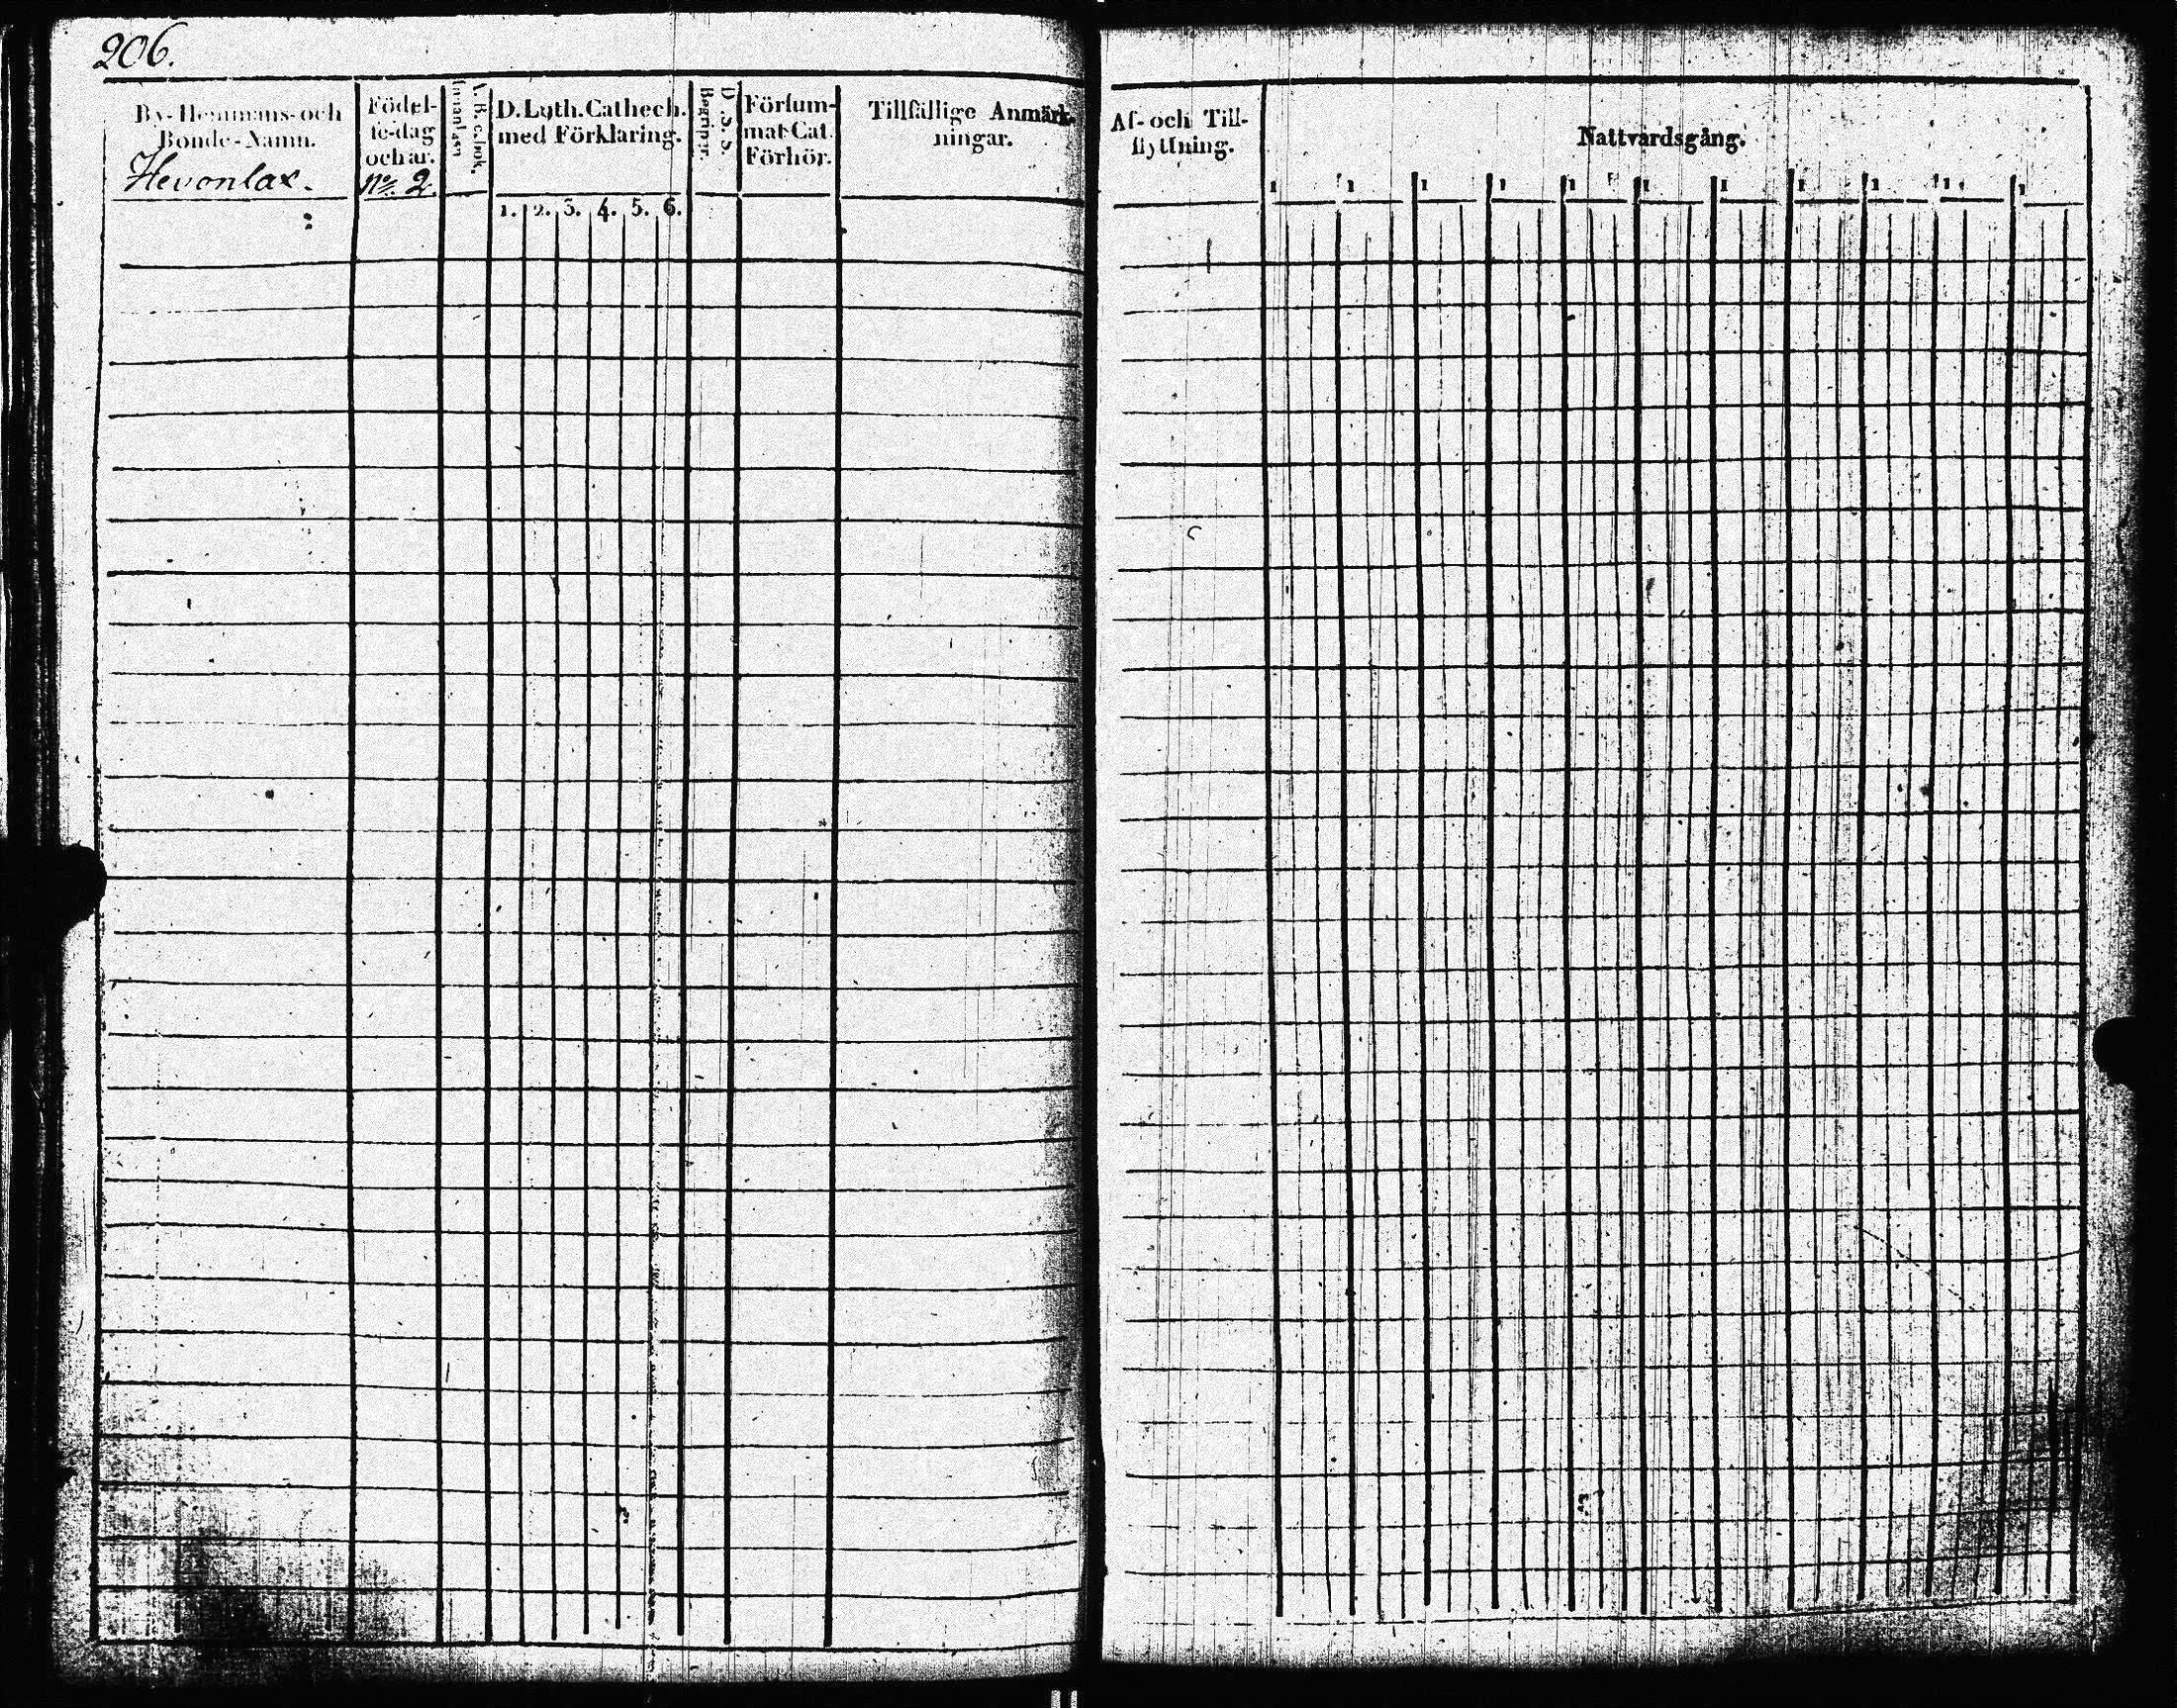 206.
By-Hemmans-och
Bonde-Namn.
Hevonlax.
Födel-
se-dag
och år.
No. 2.
A. B. c. bok.
Innanläsn
D. Luth. Cathech.
med Förklaring.
1. 2. 3. 4. 5. 6.
D. S. S.
Begrepp.
Försum-
mat Cat.
Förhör.
Tillfällige Anmärk-
ningar.
Af- och Till-
flyttning.
Nattvardsgång.
1 1 1 1 1 1 1 1 1 1 1